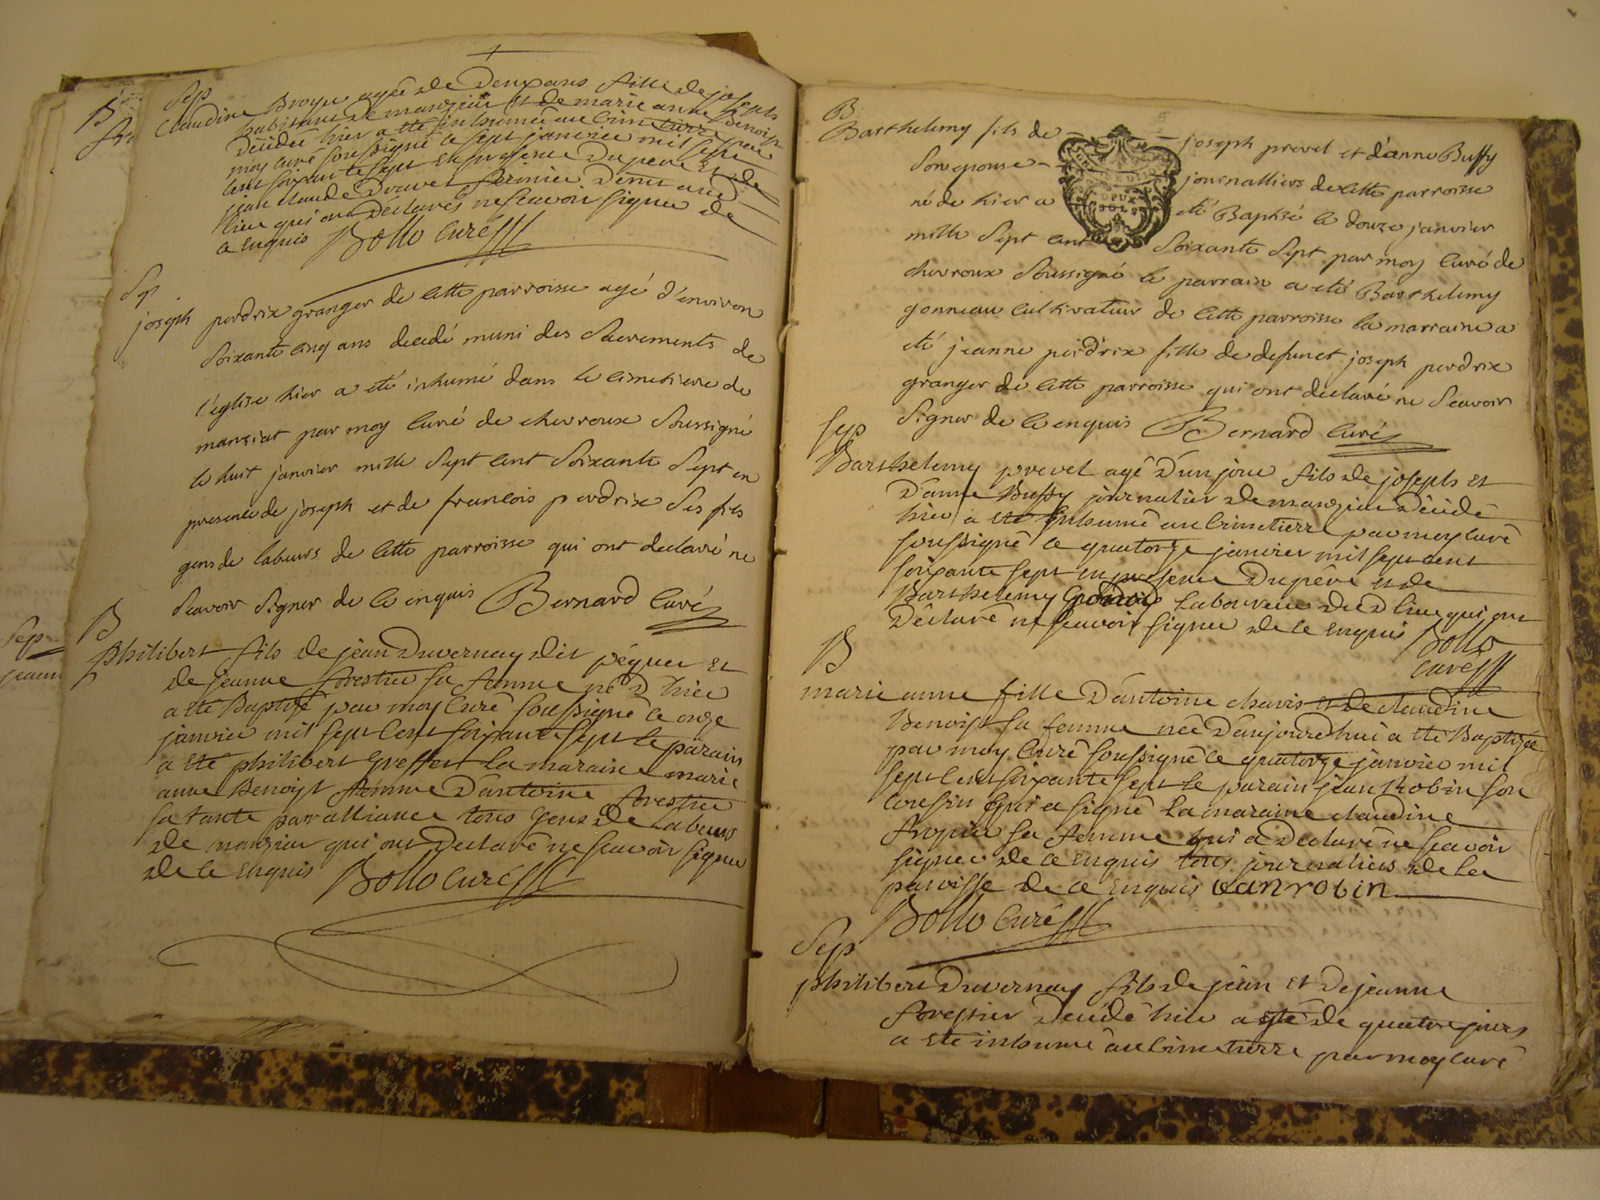 Sep
Claudine Broyer agée de Deux ans fille de joseph
habitant de manziat et de marie anne Benoist
Décédée hier a été inhumée au Cimetierre par
moy curé soussigné ce sept janvier mil sept
cent soixante sept en presence Du pere et de
jean claude Druvet fermier
lieu qui ont Déclarés ne scavoir signer de
ce Enquis Bollo Curé
Sep
joseph perdrix granger de cette parroisse agé d'environ
soixante cinq ans decedé muni des Sacrements de
l'église hier a été inhumé dans le cimetiere de
manziat par moy curé de chevroux Soussigné
le huit janvier mille Sept cent Soixante Sept en
presence de joseph et de francois perdrix Ses fils
gens de labeurs de cette parroisse qui ont declaré ne
Scavoir Signer de ce enquis Bernard curé
B
philibert fils de jean Duvernay dit péquer et
de jeanne forestier sa femme né D'hier
a été Baptisé par moy Curé soussigné ce onze
janvier mil sept Cent soixante sept le parain
a été philibert Greffet la maraine marie
anne Benoist femme D'antoine forestier
sa tante par alliance tous Gens de Labeurs
de manziat qui ont Declaré ne scavoir signer
de ce Enquis Bollo Curé
Sep
jeann
B
Barthelemy fils de joseph prevel et d'anne Buffy
Son epouse journalliers de cette parroisse
né de hier a été Baptisé le douze janvier
mille Sept cent Soixante Sept par moy Curé de
chevroux Soussigné le parrain a été Barthelemy
gonneau cultivateur de cette parroisse la marraine a
été jeanne perdrix fille de defunct joseph perdrix
granger de cette parroisse qui ont declaré ne Scavoir
Signer de ce enquis Bernard curé
Sep
Barthelemy prevel agé D'un jour fils de joseph et
D'anne Buffy journalier de manziat Décédé
hier a été inhumé au Cimetierre par moy curé
soussigné ce quatorze janvier mil sept cent
soixante sept en presence Du père et de
Barthelemy Laboureur dud lieu qui ont
Déclaré ne scavoir signer de ce Enquis Bollo
curé
B
marie anne fille D'antoine chavis et de claudine
Benoist sa femme née D'aujourd'hui a été Baptisée
par moy Curé soussigné ce quatorze janvier mil
sept Cent soixante sept le parain jean Robin son
cousin qui a signé La maraine claudine
sa femme qui a Declaré ne scavoir
signer de ce Enquis tous journaliers de la
paroisse de ce Enquis Jan robin
Bollo Curé
Sep
philibert Duvernay fils de jean et De jeanne
forestier Décédé hier agé de quatre jours
a été inhumé au Cimetierre par moy curé